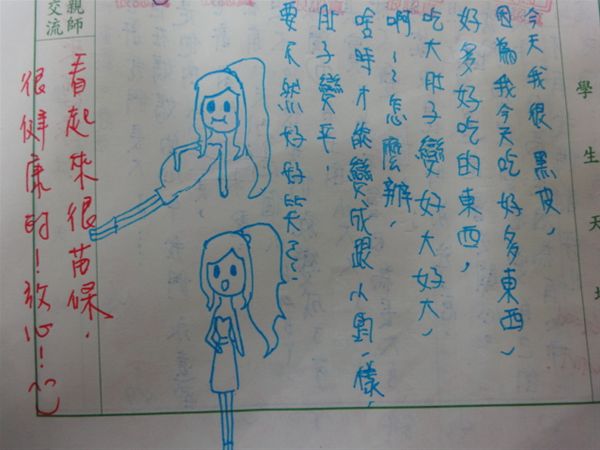 學生天地
今天我很黑皮,
因為我今天吃好多東西,
好多好吃的東西,
吃大肚子變好大好大,
啊~~怎麼辦,
啥時才能變成跟小一樣,
肚子變平!
要不然好好笑
親師交流
看起來很苗條.
很健康的!放心!